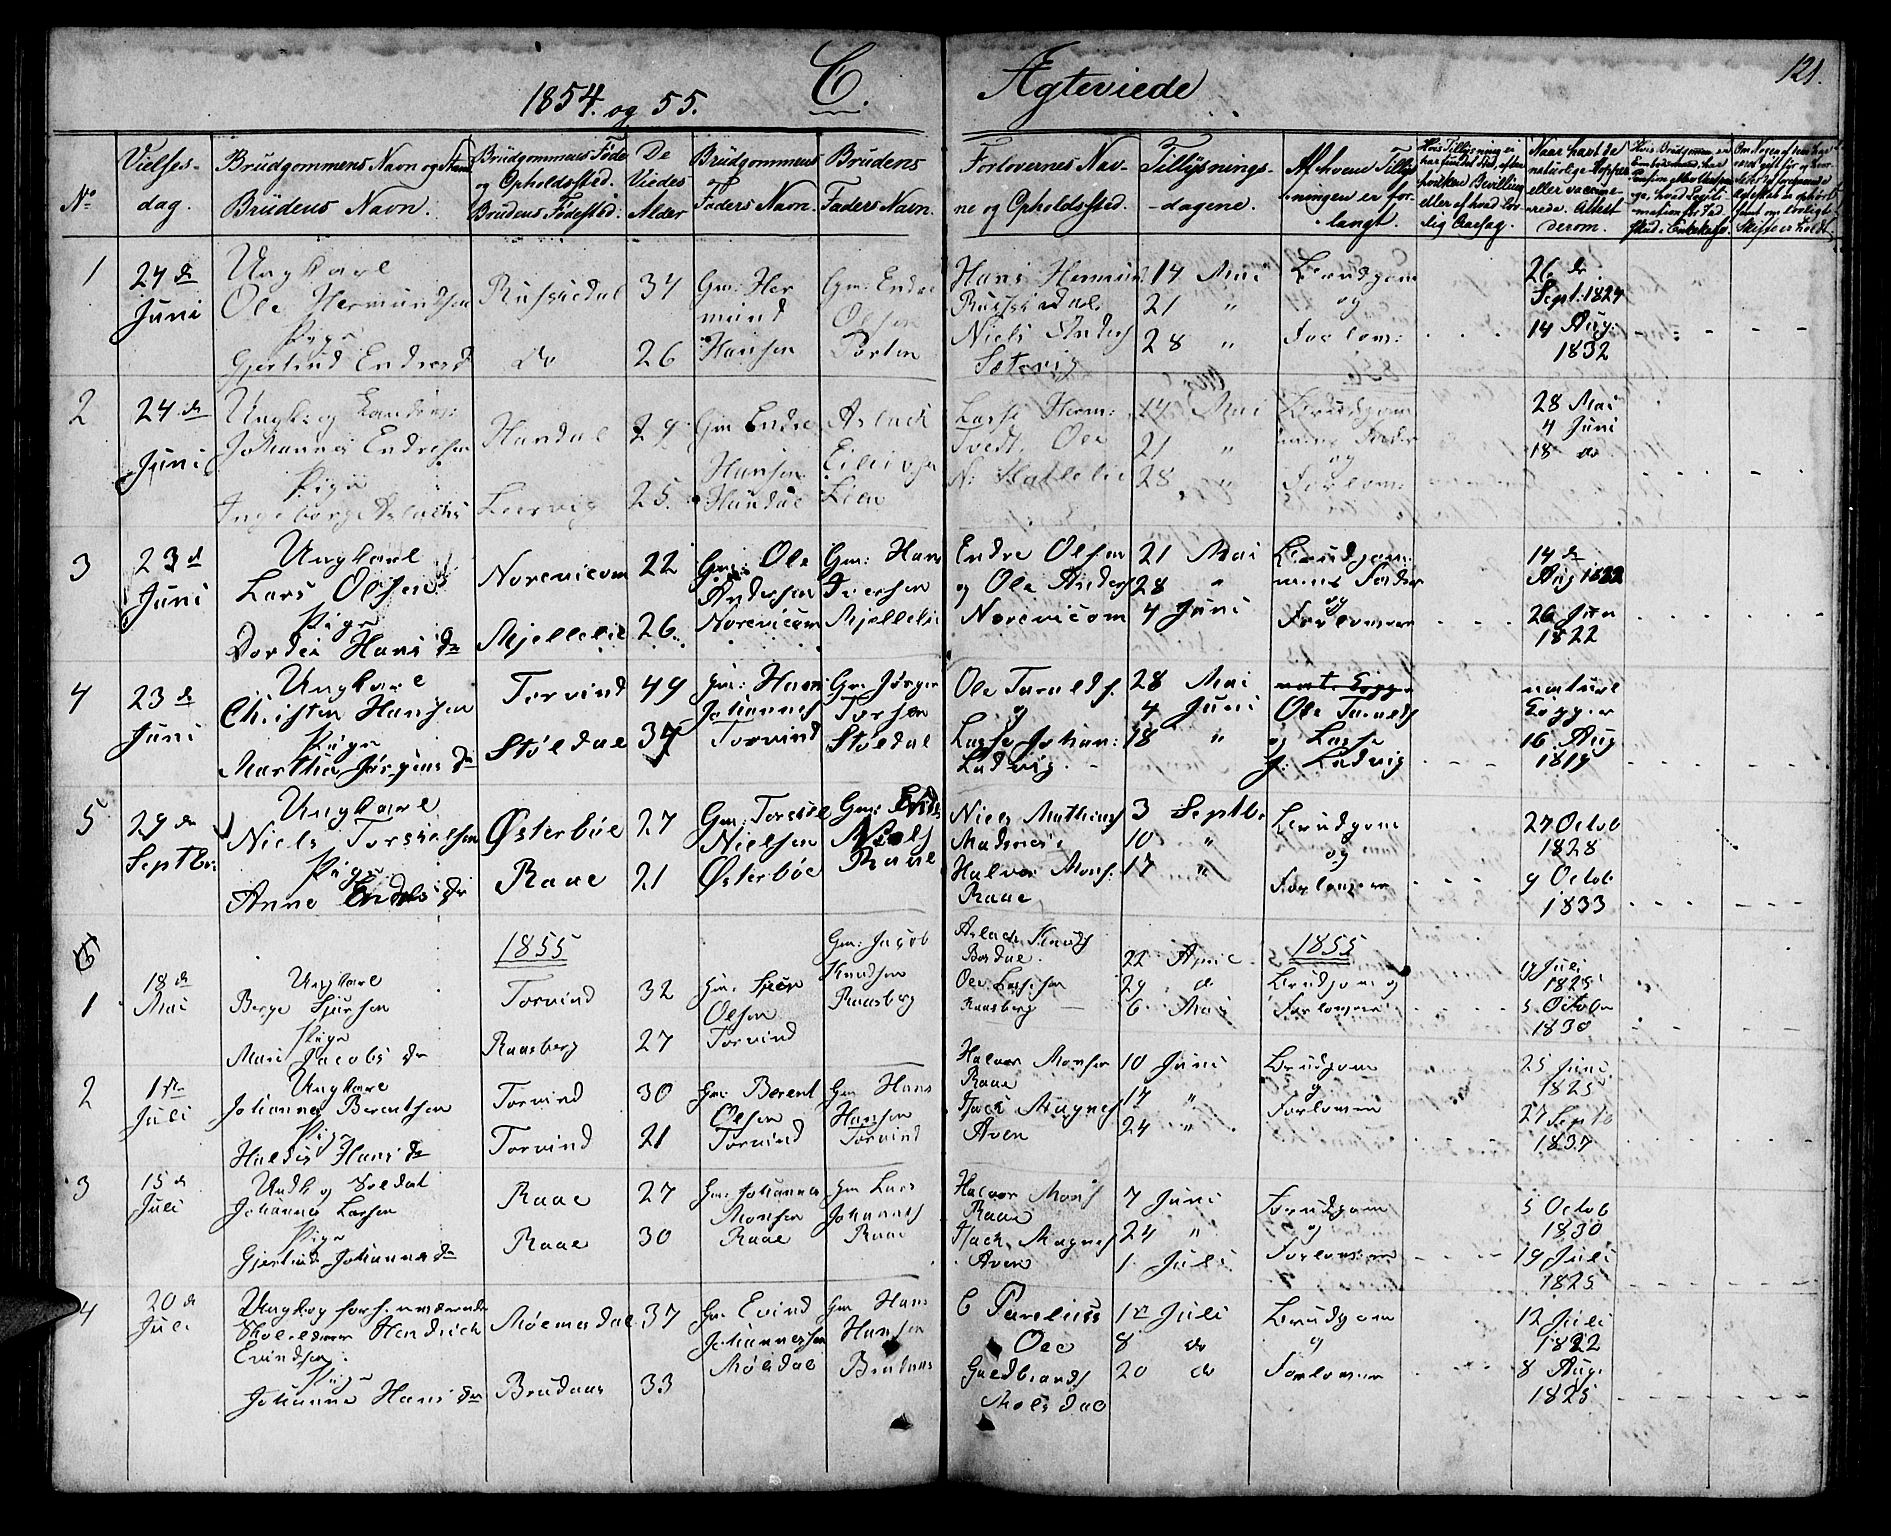 1854. og 55. C. Ægteviede 121.
No
Vielses-
dag.
Brudgommens Navn og Stand
Brudens Navn.
Brudgommens Føde
og Opholdssted.
Brudens Fødested.
De
Viedes
Alder
Brudgommens
Faders Navn.
Brudens
Faders Navn.
Forlovernes Nav-
ne og Opholdssted.
Tillysnings-
-dagene.
Af hvem Tillys
ningen er for-
langt.
Naar havt de
naturlige Kopper
eller vaccine-
rede. Attest
derom.
1
24 de
Juni
Ungkarl
Ole Hermundsen
Pige
Gjertrud Endresd
Russedal
do
34
26
Gm: Her
mund
Hansen
Gm: Endre
Olsen
Porten
Hans Hermund
Russedal
Niels Anders
Sætevig
14 Mai
21 "
28 "
Brudgom
og
Forlover
26 de
Sept: 1824
14 Aug:
1832
2
24 de
Juni
Johannes Endresen
Pige
Ingeborg Aslachs
Handal
Leervig
29
25
Gm Endre
Hansen
Handal
Aslach
Eilevsen
Lien
Lasse Herm:
Tvedt, Ole
14 Mai
21 "
28 "
Brudgom
mens Fader
og
Forlover
28 Mai
4 Juni
18 do
3
23 d
Juni
Ungkarl
Lars Olsen
Pige
Dordei Hans dr
Norevicom
Mjellelie
22
26
Gm: Ole
Andersen
Norevicom
Gm: Hans
Iversen
Mjellelie
Endre Olsen
og Ole Anders
Norevicom
21 Mai
28 "
4 Juni
Brudgom
mens Fader
og
Forlovere
14 de
Aug 1822
26 Jun
1822
4
23 de
Juni
Ungkarl
Christen Hansen
Pige
Martha Jørgens dr
Torvind
Støldal
49
37
Gm: Hans
Johannes
Torvind
Gm Jørgen
Torsen
Støldal
Ole Taralds.
og
Lasse Johan:
Ladvig
28 Mai
4 Juni
18 "
Ole Taralds
og Lasse
J. Ladvig
natural
Kopper
16 Aug
1819
5
29 de
Septbr:
Ungkarl
Niels Torkielsen
Pige
Anne Endres dr
Østerbøe
Raae
27
21
Gm: Torkiel
Nielsen
Østerbøe
Gm: Endre
Niels
Raae
Niels Mathias
Madsnes:
Halvor Mons.
Raae
3 Septbr.
10 "
17 "
Brudgom
og
Forlovere
27 Octob
1828
9 Octob
1833
6
1855
1855
1
18 de
Mai
Ungkarl
Berge Sjursen
Pige
Mari Jacobs dr
Torvind
Raasberg
32
27
Gm: Sjur
Olsen
Torvind
Gm: Jacob
Knudsen
Raasberg
Aslach Knuds
Bordal
Ole Lassesen
Raasberg
22 April
29 do
6 Mai
Brudgom og
Forlovere
9 Juli
1825
5 October
1830
2
1ste
Juli
Ungkarl
Johannes Berentsen
Pige
Haldis Hans dr
Torvind
Torvind
30
21
Gm: Berent
Olsen
Torvind
Gm Hans
Hansen
Torvind
Halvor Monsen
Raae
Isach Magnes
Aven
10 Juni
17 "
24 "
Brudgom
og
Forlovere
25 Juni
1825
27 Septb
1837
3
15 de
Juli
Ungk og Soldat
Johannes Larsen
Pige
Gjertrud Johannes dr
Raae
Raae
27
30
Gm: Johannes
Monsen
Raae
Gm Lars
Johannes
Raae
Halvor Mons
Raae
Isach Magnes
Aven
7 Juni
24 "
1 Juli
Brudgom
og
Forlovere
5 Octob
1830
19 Juli
1825
4
20 de
Juli
Ungk og forh. værende
Skolelærer Hendrich
Evindsen
Pige
Johanne Hans dr
Mølmesdal
Bradaas
37
33
Gm Evind
Johannessen
Møldal
Gm Hans
Hansen
Bradaas
C Pavelius
Ole
Guldbrands
Molsdal
1ste Juli
8 do
20 do
Brudgom
og
Forlovere
12 Juli
1822
8 Aug:
1825